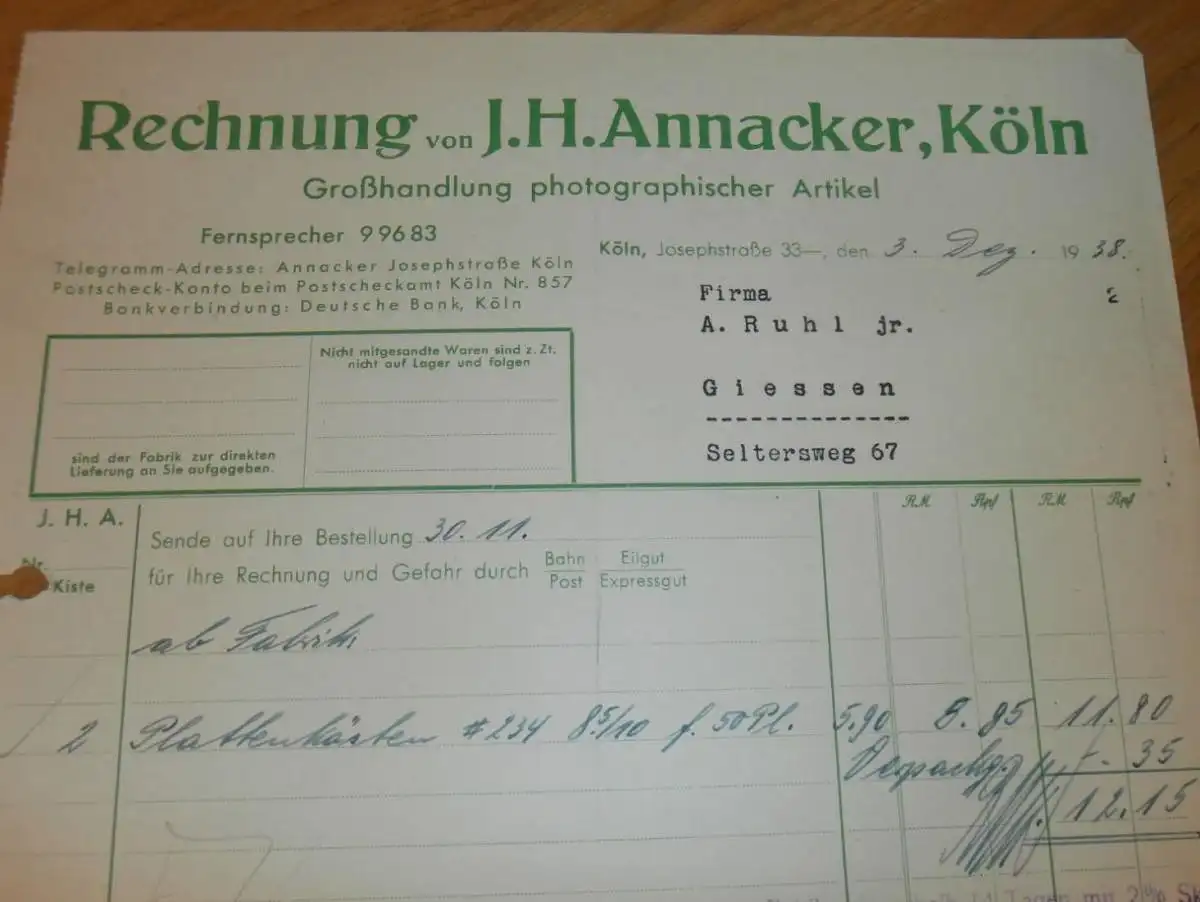 Rechnung von J.H. Annacker, Köln
Großhandlung photographischer Artikel
Fernsprecher 99683
Telegramm-Adresse: Annacker Josephstraße Köln
Postscheck-Konto beim Postscheckamt Köln Nr. 857
Bankverbindung: Deutsche Bank, Köln
Köln, Josephstraße 33—, den 3. Dez. 1938.
Firma 2
A. Ruhl jr.
Giessen
--------------
Seltersweg 67
Nicht mitgesandte Waren sind z. Zt.
nicht auf Lager und folgen
sind der Fabrik zur direkten
Lieferung an Sie aufgegeben.
RM Rpf RM Rpf
J. H. A.
Nr.
Kiste
Sende auf Ihre Bestellung 30. 11.
für Ihre Rechnung und Gefahr durch Bahn Eilgut
Post Expressgut
ab Fabrik
2 Plattenkästen # 234 8⁵/10 f. 50 Pl. 5.90 11.80
Verpackg. -. 35
12.15
14 Tagen mit 2%